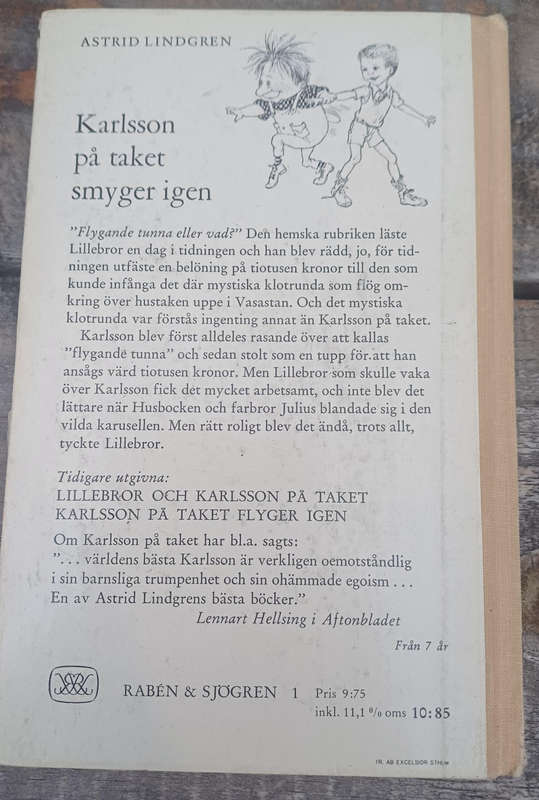 ASTRID LINDGREN
Karlsson
på taket
smyger igen
"Flygande tunna eller vad?" Den hemska rubriken läste
Lillebror en dag i tidningen och han blev rädd, jo, för tid-
ningen utfäste en belöning på tiotusen kronor till den som
kunde infånga det där mystiska klotrunda som flög om-
kring över hustaken uppe i Vasastan. Och det mystiska
klotrunda var förstås ingenting annat än Karlsson på taket.
Karlsson blev först alldeles rasande över att kallas
"flygande tunna" och sedan stolt som en tupp för att han
ansågs värd tiotusen kronor. Men Lillebror som skulle vaka
över Karlsson fick det mycket arbetsamt, och inte blev det
lättare när Husbocken och farbror Julius blandade sig i den
vilda karusellen. Men rätt roligt blev det ändå, trots allt,
tyckte Lillebror.
Tidigare utgivna:
LILLEBROR OCH KARLSSON PÅ TAKET
KARLSSON PÅ TAKET FLYGER IGEN
Om Karlsson på taket har bl.a. sagts:
"... världens bästa Karlsson är verkligen oemotståndlig
i sin barnsliga trumpenhet och sin ohämmade egoism ...
En av Astrid Lindgrens bästa böcker."
Lennart Hellsing i Aftonbladet
Från 7 år
RABÉN & SJÖGREN 1 Pris 9:75
inkl. 11,1 % oms 10:85
AB EXCELSIOR STHLM